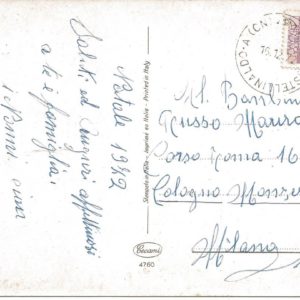 Natale 1982
Saluti ed auguri affettuosi
a te e famiglia.
Stampato in Italia - Imprimé en Italie - Printed in Italy
Cecami
4760
CASTELLINALDO-A (CN)
Al Bambino
Russo Mauro
Corso Roma 16
Cologno Monzese
Milano